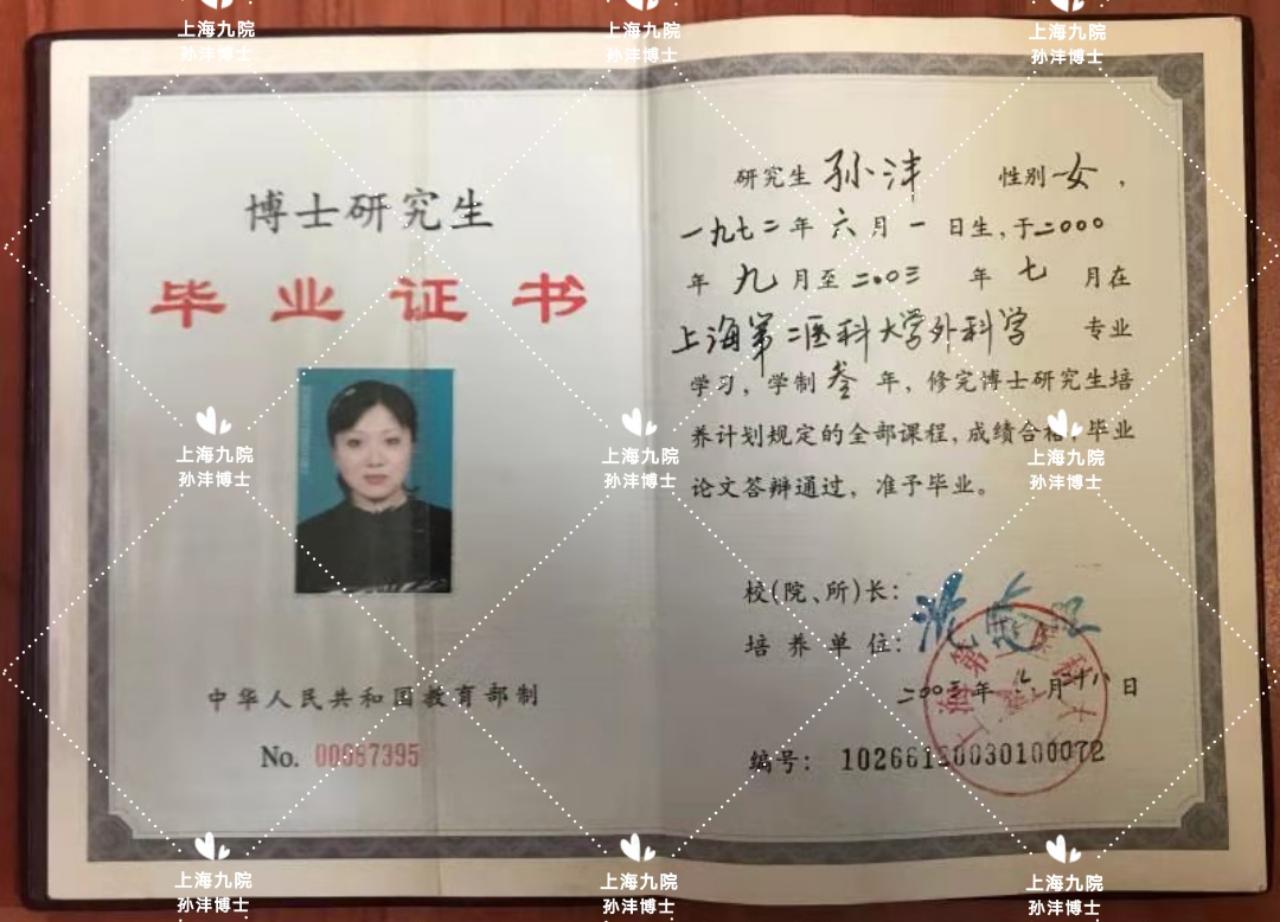 上海九院
孙沣博士
上海九院
孙沣博士
上海九院
孙沣博士
博士研究生
毕业证书
中华人民共和国教育部制
No. 00687395
研究生 孙沣 性别 女 ，
一九七二 年 六 月 一 日生，于二000
年 九 月至 二00三 年 七 月在
上海第二医科大学外科学 专业
学习，学制 叁 年，修完博士研究生培
养计划规定的全部课程，成绩合格，毕业
论文答辩通过，准予毕业。
校(院、所)长：
培 养 单 位：
二00三 年 六 月 二十八 日
编号：
上海九院
孙沣博士
上海九院
孙沣博士
上海九院
孙沣博士
上海九院
孙沣博士
上海九院
孙沣博士
上海九院
孙沣博士